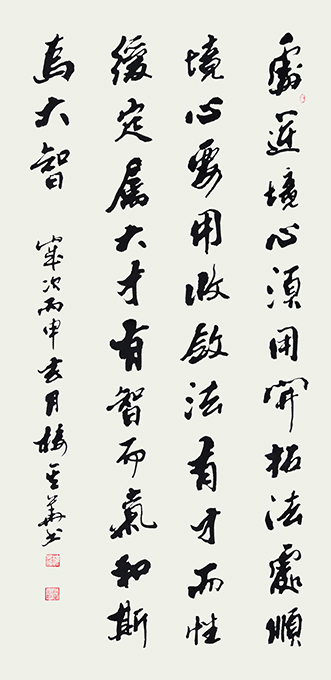 處逆境心須用開拓法處順
境心要用收斂法有才而性
緩定屬大才有智而氣和斯
為大智 歲次丙申月樓華书